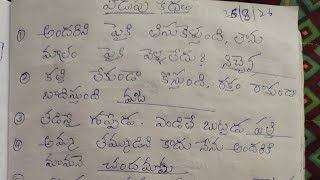 పొడుపు కథలు
① అందరిని పైకి తీసుకెళ్తుంది, తాను
మాత్రం పైకి వెళ్ళలేదు? నిచ్చెన
② కత్తి లేకుండా కోస్తుంది, రక్తం రాకుండా
బాధిస్తుంది
③ తడిస్తే గుప్పెడు, ఎండితే బుట్టెడు పత్తి
④ అమ్మ తమ్ముడుని కాదు నేను అందరికి
మామనే చందమామ